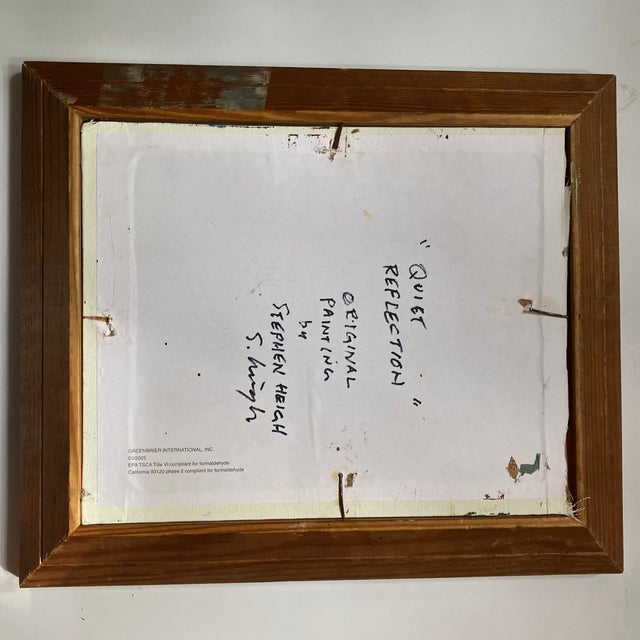 " QUIET
REFLECTION "
ORIGINAL
PAINTING
by
STEPHEN HEIGH
S. Heigh
GREENBRIER INTERNATIONAL, INC.
03/2025
EPA TSCA Title VI compliant for formaldehyde
California 93120 phase 2 compliant for formaldehyde